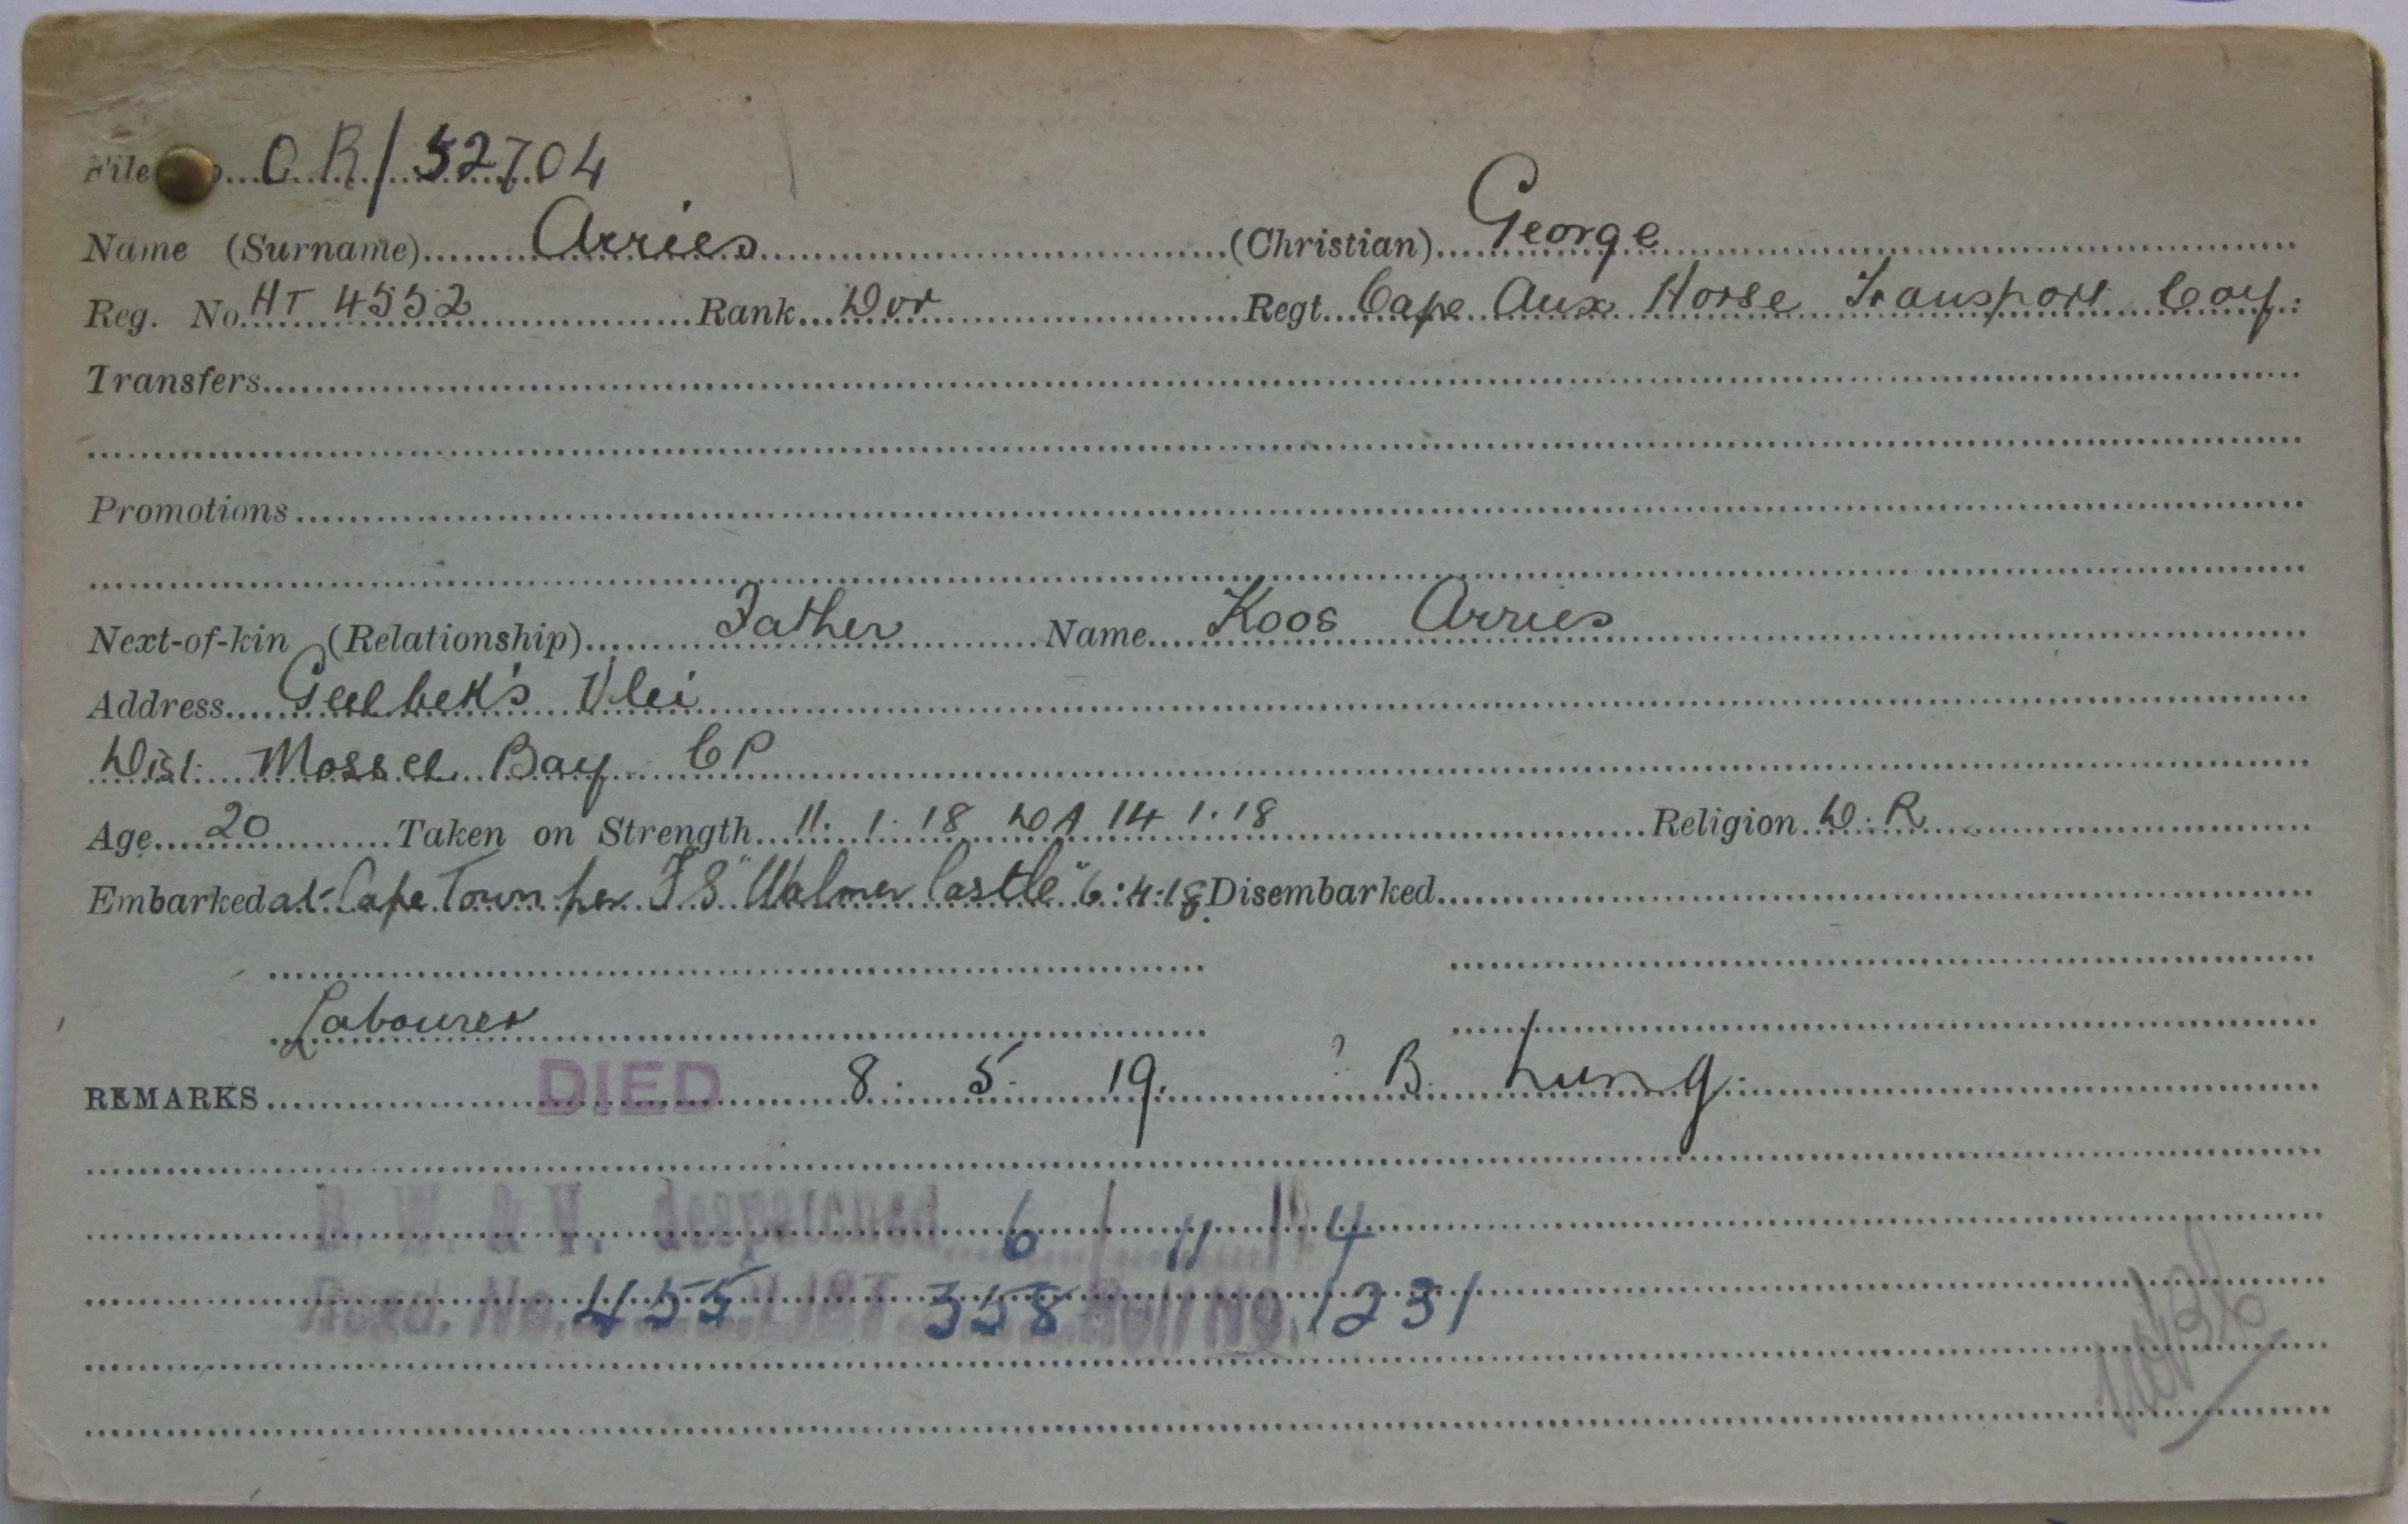 File No. C R/52704
Name (Surname) Arries (Christian) George
Reg. No. HT 4552 Rank Dvr Regt. Cape Aux Horse Transport Coy.
Transfers
Promotions
Next-of-kin (Relationship) Father Name Koos Arries
Address Geelbek's Vlei
Dist Mossel Bay CP
Age 20 Taken on Strength 11. 1. 18 DA 14 1.18 Religion D.R
Embarked at Cape Town per T S "Walmer Castle" 6:4:18. Disembarked
Labourer
REMARKS DIED 8. 5. 19. ? B. Lung.
B. W. & V. despatched 6 / 11 / 4
Regd. No. 455 LIST 358 Roll No. 1231